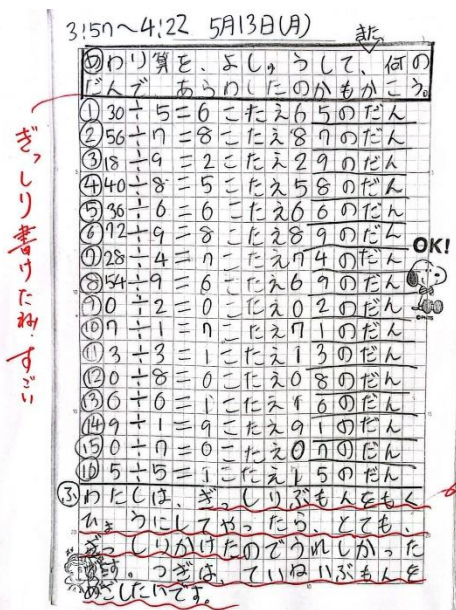 3:57～4:22 5月13日(月)
また
めわり算を、よしゅうして、何の
だんで、あらわしたのかもかこう。
①30÷5=6こたえ6 5のだん
②56÷7=8こたえ8 7のだん
③18÷9=2こたえ2 9のだん
④40÷8=5こたえ5 8のだん
⑤36÷6=6こたえ6 6のだん
⑥72÷9=8こたえ8 9のだん
⑦28÷4=7こたえ7 4のだん
⑧54÷9=6こたえ6 9のだん
⑨0÷2=0こたえ0 2のだん
⑩7÷1=7こたえ7 1のだん
⑪3÷3=1こたえ1 3のだん
⑫0÷8=0こたえ0 8のだん
⑬6÷6=1こたえ1 6のだん
⑭9÷1=9こたえ9 1のだん
⑮0÷7=0こたえ0 7のだん
⑯5÷5=1こたえ1 5のだん
ふわたしは、ぎっしりぶもんをもく
ひょうにしてやったら、とても、
ぎっしりかけたのでうれしかった
です。つぎは、ていねいぶもんを
めざしたいです。
ぎっしり書けたね！すごい
OK!